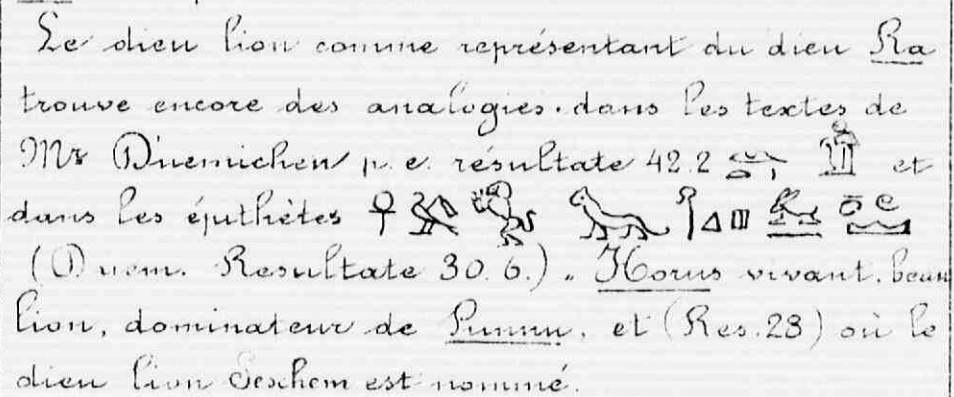 Le dieu lion comme représentant du dieu Ra
trouve encore des analogies dans les textes de
Mr Duemichen p. e. résultate 42.2 et
dans les épithètes
(Duem. Resultate 30. 6.) „ Horus vivant, beau
lion, dominateur de Punnu, et (Res. 28) où le
dieu lion Seschem est nommé.